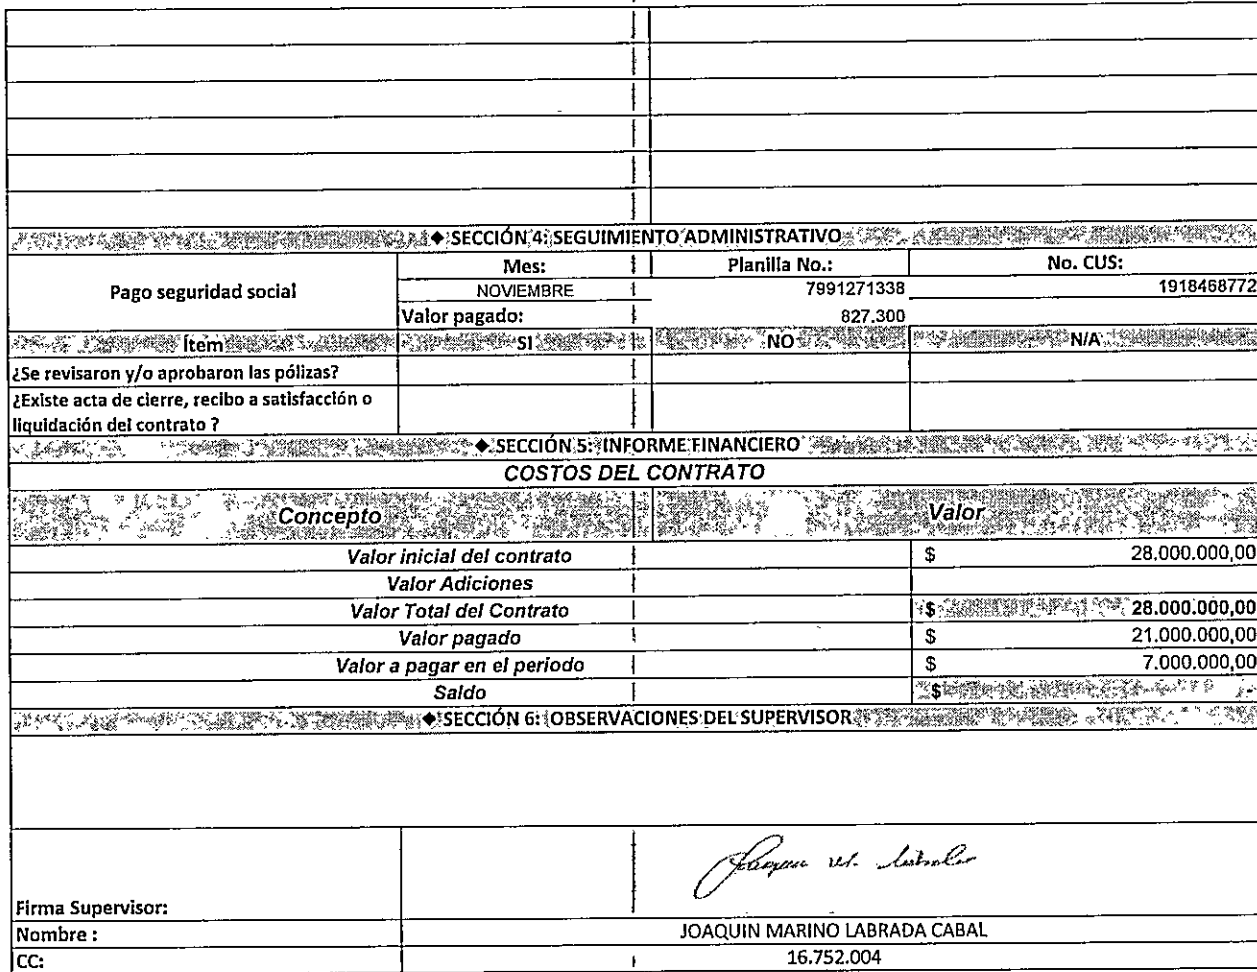 ◆ SECCIÓN 4: SEGUIMIENTO ADMINISTRATIVO
Pago seguridad social
Mes: Planilla No.: No. CUS:
NOVIEMBRE 7991271338 1918468772
Valor pagado: 827.300
Ítem SI NO N/A
¿Se revisaron y/o aprobaron las pólizas?
¿Existe acta de cierre, recibo a satisfacción o
liquidación del contrato ?
◆ SECCIÓN 5: INFORME FINANCIERO
COSTOS DEL CONTRATO
Concepto Valor
Valor inicial del contrato $ 28.000.000,00
Valor Adiciones
Valor Total del Contrato $ 28.000.000,00
Valor pagado $ 21.000.000,00
Valor a pagar en el periodo $ 7.000.000,00
Saldo $
◆ SECCIÓN 6: OBSERVACIONES DEL SUPERVISOR
Firma Supervisor:
Nombre : JOAQUIN MARINO LABRADA CABAL
CC: 16.752.004